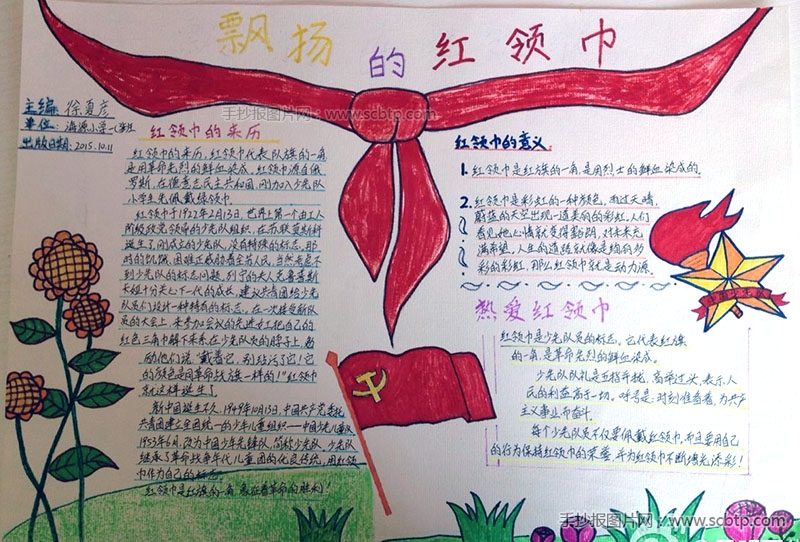 飘扬的红领巾
手抄报图片网：www.scbtp.com
主编 徐夏彦
单位：海源小学一(2)班
出版日期：2015.10.11
红领巾的来历
红领巾的来历，红领巾代表队旗的一角
是用革命先烈的鲜血染成。红领巾源自俄
罗斯，在德意志民主共和国，刚加入少先队
小学生先佩戴绿领巾。
红领巾于1922年2月13日，世界上第一个由工人
阶级政党领导的少先队组织，在苏联莫斯科
诞生了。刚成立的少先队，没有特殊的标志，那
时的饥饿、困难正威胁着全苏人民，当然考虑不
到少先队的标志问题，列宁的夫人克鲁普斯
卡娅十分关心下一代的成长，建议共青团给少先
队员们设计一种特有的标志，在一次接受新队
员的大会上，来参加会议的先进女工把自己的
红色三角巾解下来系在少先队员的脖子上，勉
励他们说：戴着它，别玷污了它！它
的颜色是同革命战旗一样的！"红领巾
就这样诞生了
新中国诞生不久，1949年10月13日，中国共产党委托
共青团建立全国统一的少年儿童组织一一中国少年儿童队
1953年6月，改为中国少年先锋队，简称少先队，少先队
继承了革命战争年代儿童团的优良传统，用红领
巾作为自己的标志
红领巾是红旗的一角，象征着革命的胜利！
红领巾的意义
1.红领巾是红旗的一角，是用烈士的鲜血染成的。
2.红领巾是彩虹的一种颜色，雨过天晴，
蔚蓝的天空出现一道美丽的彩虹，人们
看见她心情就变得舒朗，对未来充
满希望，人生的道路就像是绚丽多
彩的彩虹，那么红领巾就是动力源。
热爱红领巾
红领巾是少先队员的标志，它代表红旗
的一角，是革命先烈的鲜血染成。
少先队队礼是五指并拢，高举过头，表示人
民的利益高于一切。呼号是：时刻准备着，为共产
主义事业而奋斗。
每个少先队员不仅要佩戴红领巾，而且要用自己
的行为保持红领巾的荣誉，并为红领巾不断增光添彩！
手抄报图片网：www.scbtp.com